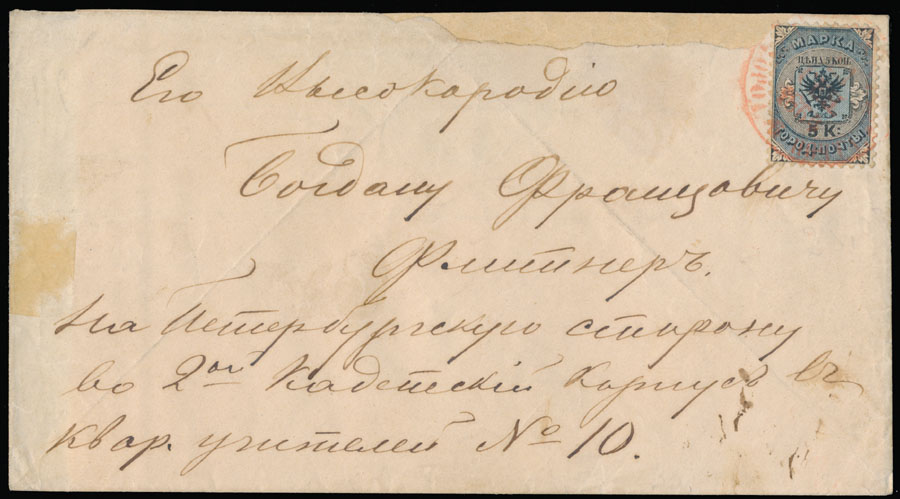 МАРКА
ЦѢНА 5 КОП.
5 К:
ГОРОД: ПОЧТЫ
Его Высокородію
Богдану Францовичу
Флитнеръ.
на Петербургскую сторону
во 2ой Кадетскій Корпусъ въ
квар. учителей № 10.